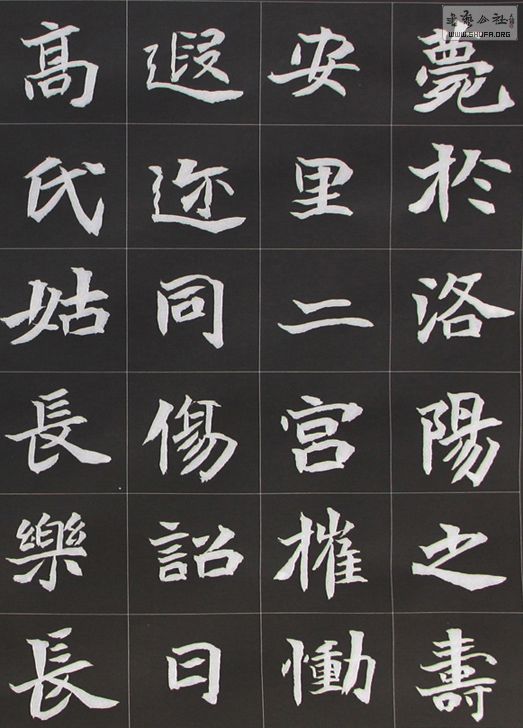 書藝公社
WWW.SHUFA.ORG
薨於洛陽之壽
安里二宮摧慟
遐迩同傷詔曰
高氏姑長樂長